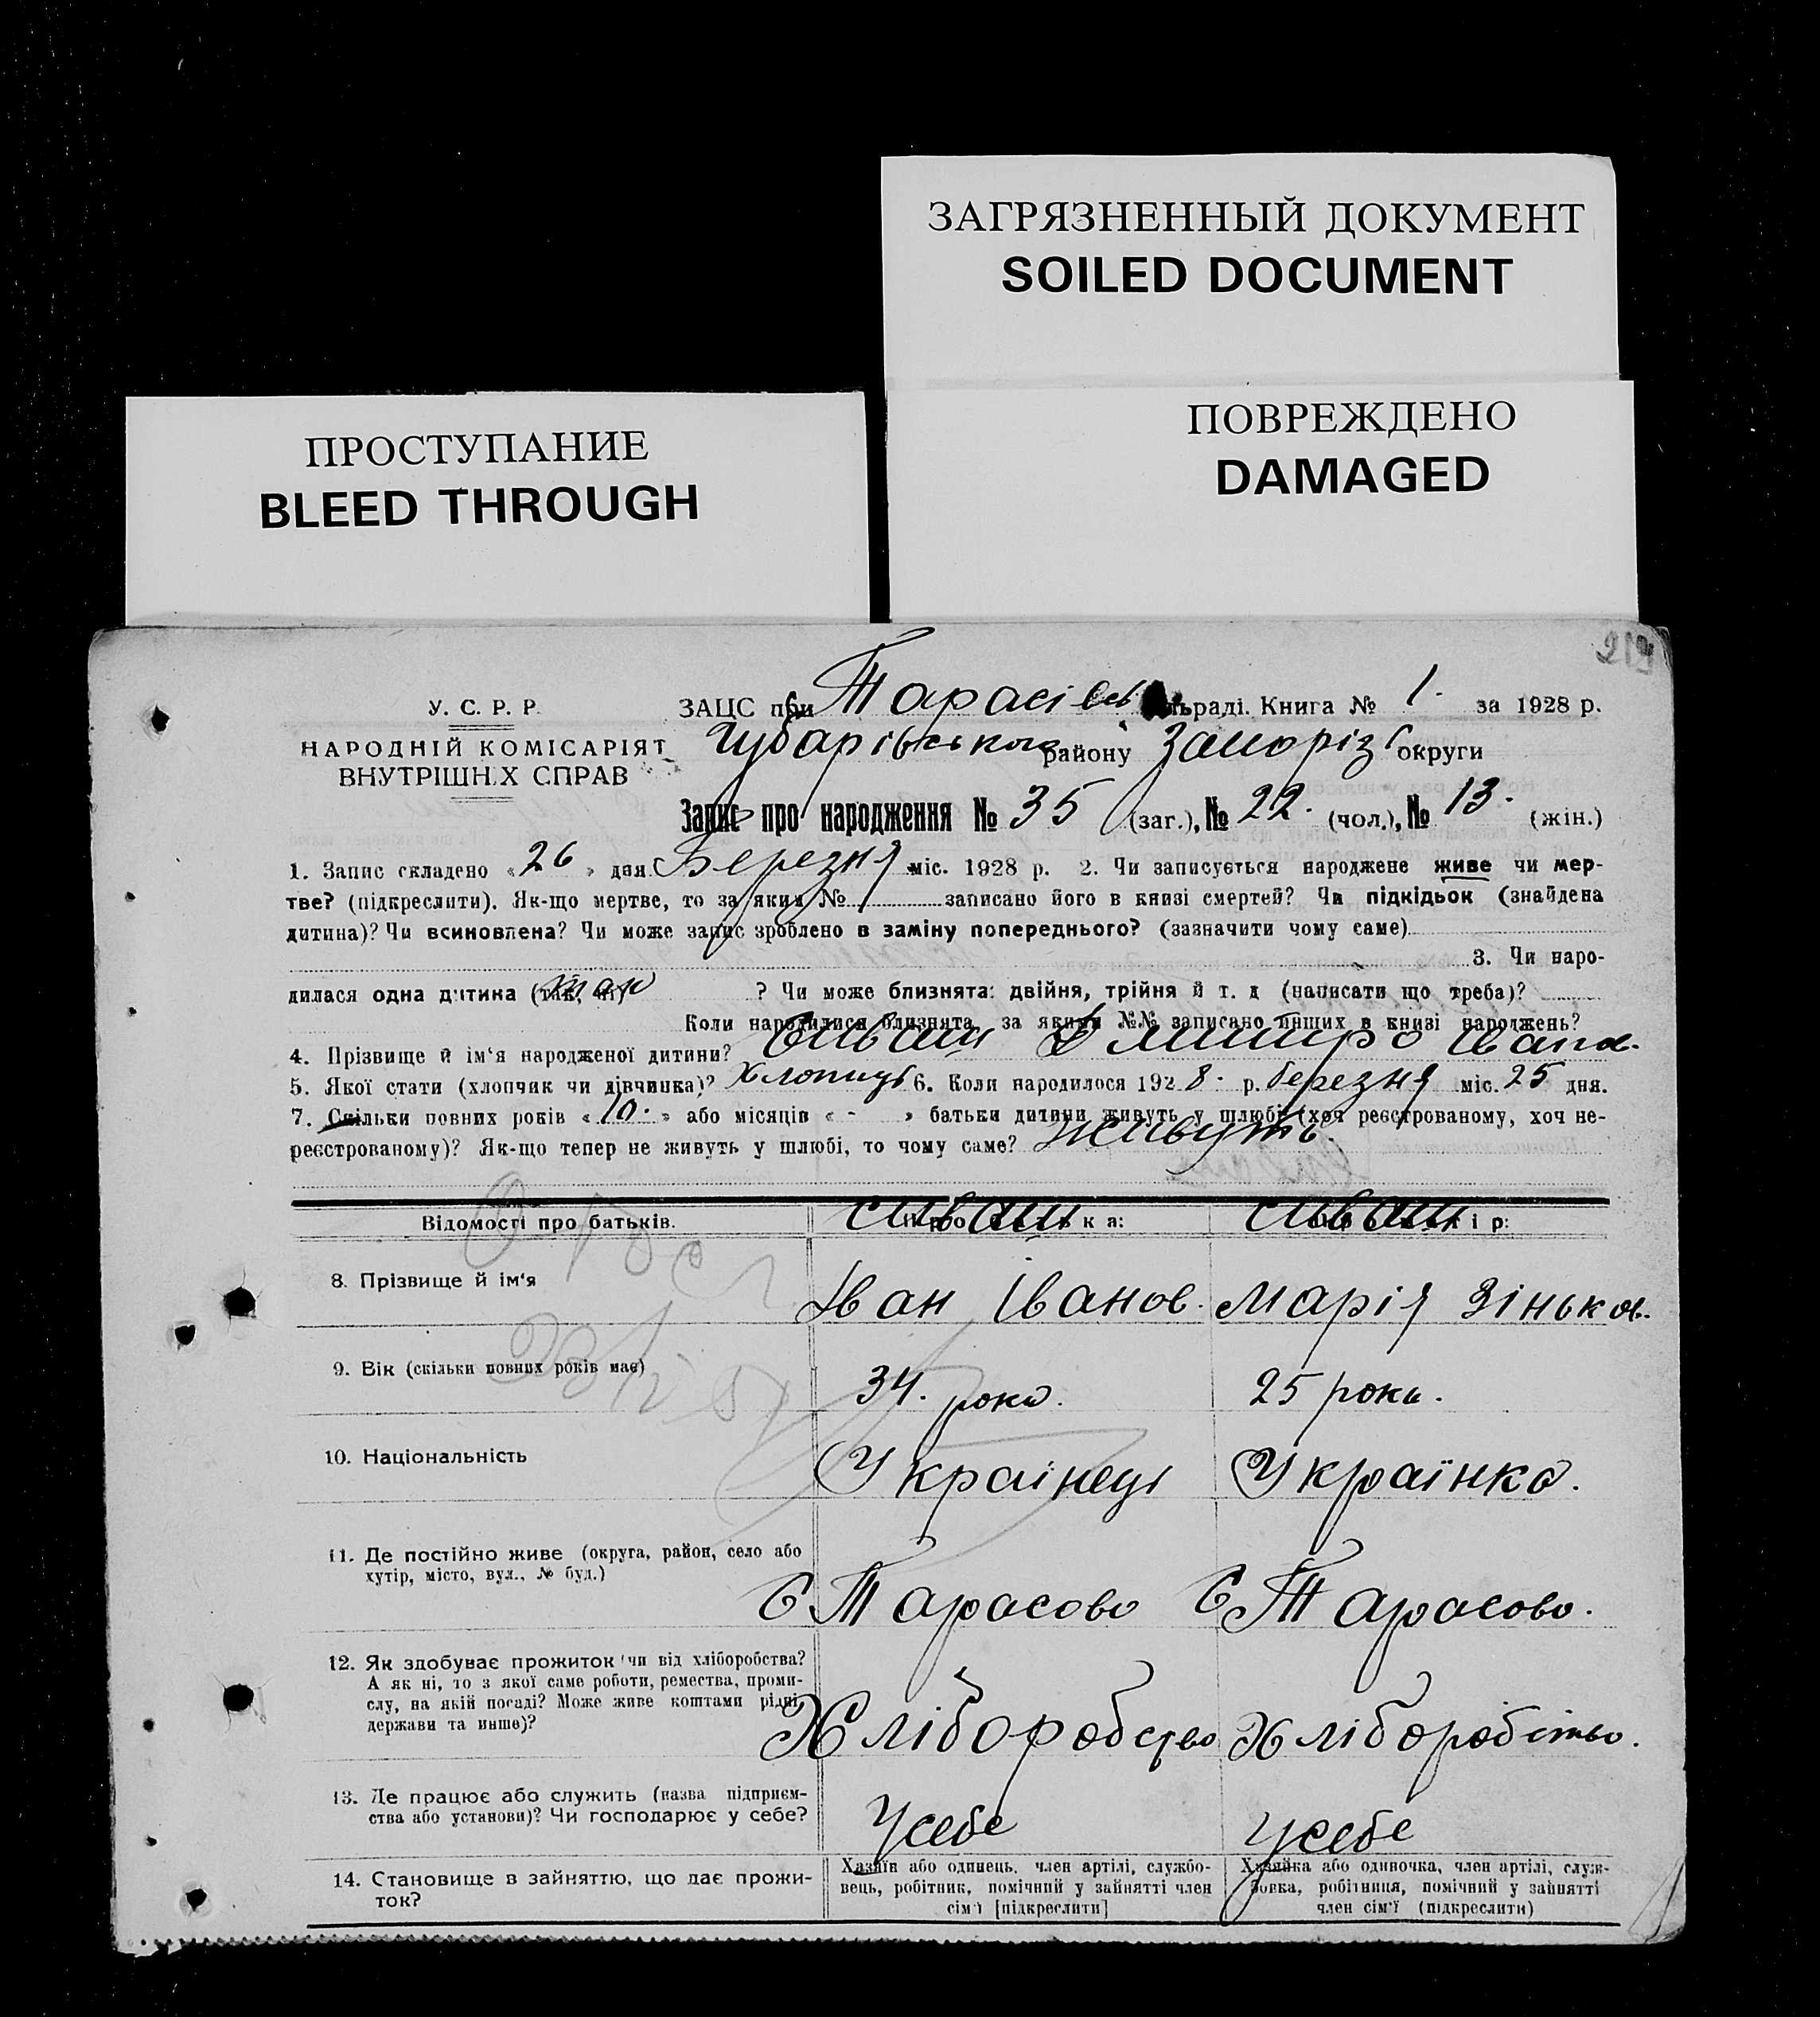 ЗАГРЯЗНЕННЫЙ ДОКУМЕНТ
SOILED DOCUMENT
ПРОСТУПАНИЕ
BLEED THROUGH
ПОВРЕЖДЕНО
DAMAGED
219
У. С. Р. Р.
НАРОДНІЙ КОМІСАРІЯТ
ВНУТРІШНІХ СПРАВ
ЗАЦС при Тарасівсь раді. Книга № 1. за 1928 р.
Чубарівського району Запоріз округи
Запис про народження № 35 (заг.), № 22. (чол.), № 13. (жін.)
1. Запис складено «26» дня Березня міс. 1928 р. 2. Чи записується народжене живе чи мер-
тве? (підкреслити). Як-що мертве, то за яким № записано його в книзі смертей? Чи підкідьок (знайдена
дитина)? Чи всиновлена? Чи може запис зроблено в заміну попереднього? (зазначити чому саме)
3. Чи наро-
дилася одна дитина (так, ні) так ? Чи може близнята: двійня, трійня й т. д (написати що треба)?
Коли народилися близнята, за якими №№ записано инших в книзі народжень?
4. Прізвище й ім'я народженої дитини? Сиваш Дмитро Іван.
5. Якої стати (хлопчик чи дівчинка)? хлопиць 6. Коли народилося 1928. р. березня міс. 25 дня.
7. Скільки повних років «10.» або місяців « - » батьки дитини живуть у шлюбі (хоч реєстрованому, хоч не-
реєстрованому)? Як-що тепер не живуть у шлюбі, то чому саме? живуть.
Відомості про батьків. Сиваш Сиваш
8. Прізвище й ім'я Іван Іванов. Марія Зіньков.
9. Вік (скільки повних років має) 34. рока. 25 рока.
10. Національність Українець Українка.
11. Де постійно живе (округа, район, село або
хутір, місто, вул., № буд.)
С Тарасово С Тарасово.
12. Як здобуває прожиток чи від хліборобства?
А як ні, то з якої саме роботи, ремества, проми-
слу, на якій посаді? Може живе коштами рідні,
держави та инше)?
Хліборобство Хліборобство.
13. Де працює або служить (назва підприєм-
ства або установи)? Чи господарює у себе?
Усебе Усебе
14. Становище в зайняттю, що дає прожи-
ток?
Хазяїн або одинець, член артілі, службо-
вець, робітник, помічний у зайнятті член
сім'ї [підкреслити]
Хазяйка або одиночка, член артілі, служ-
бовка, робітниця, помічний у зайнятті
член сім'ї (підкреслити)